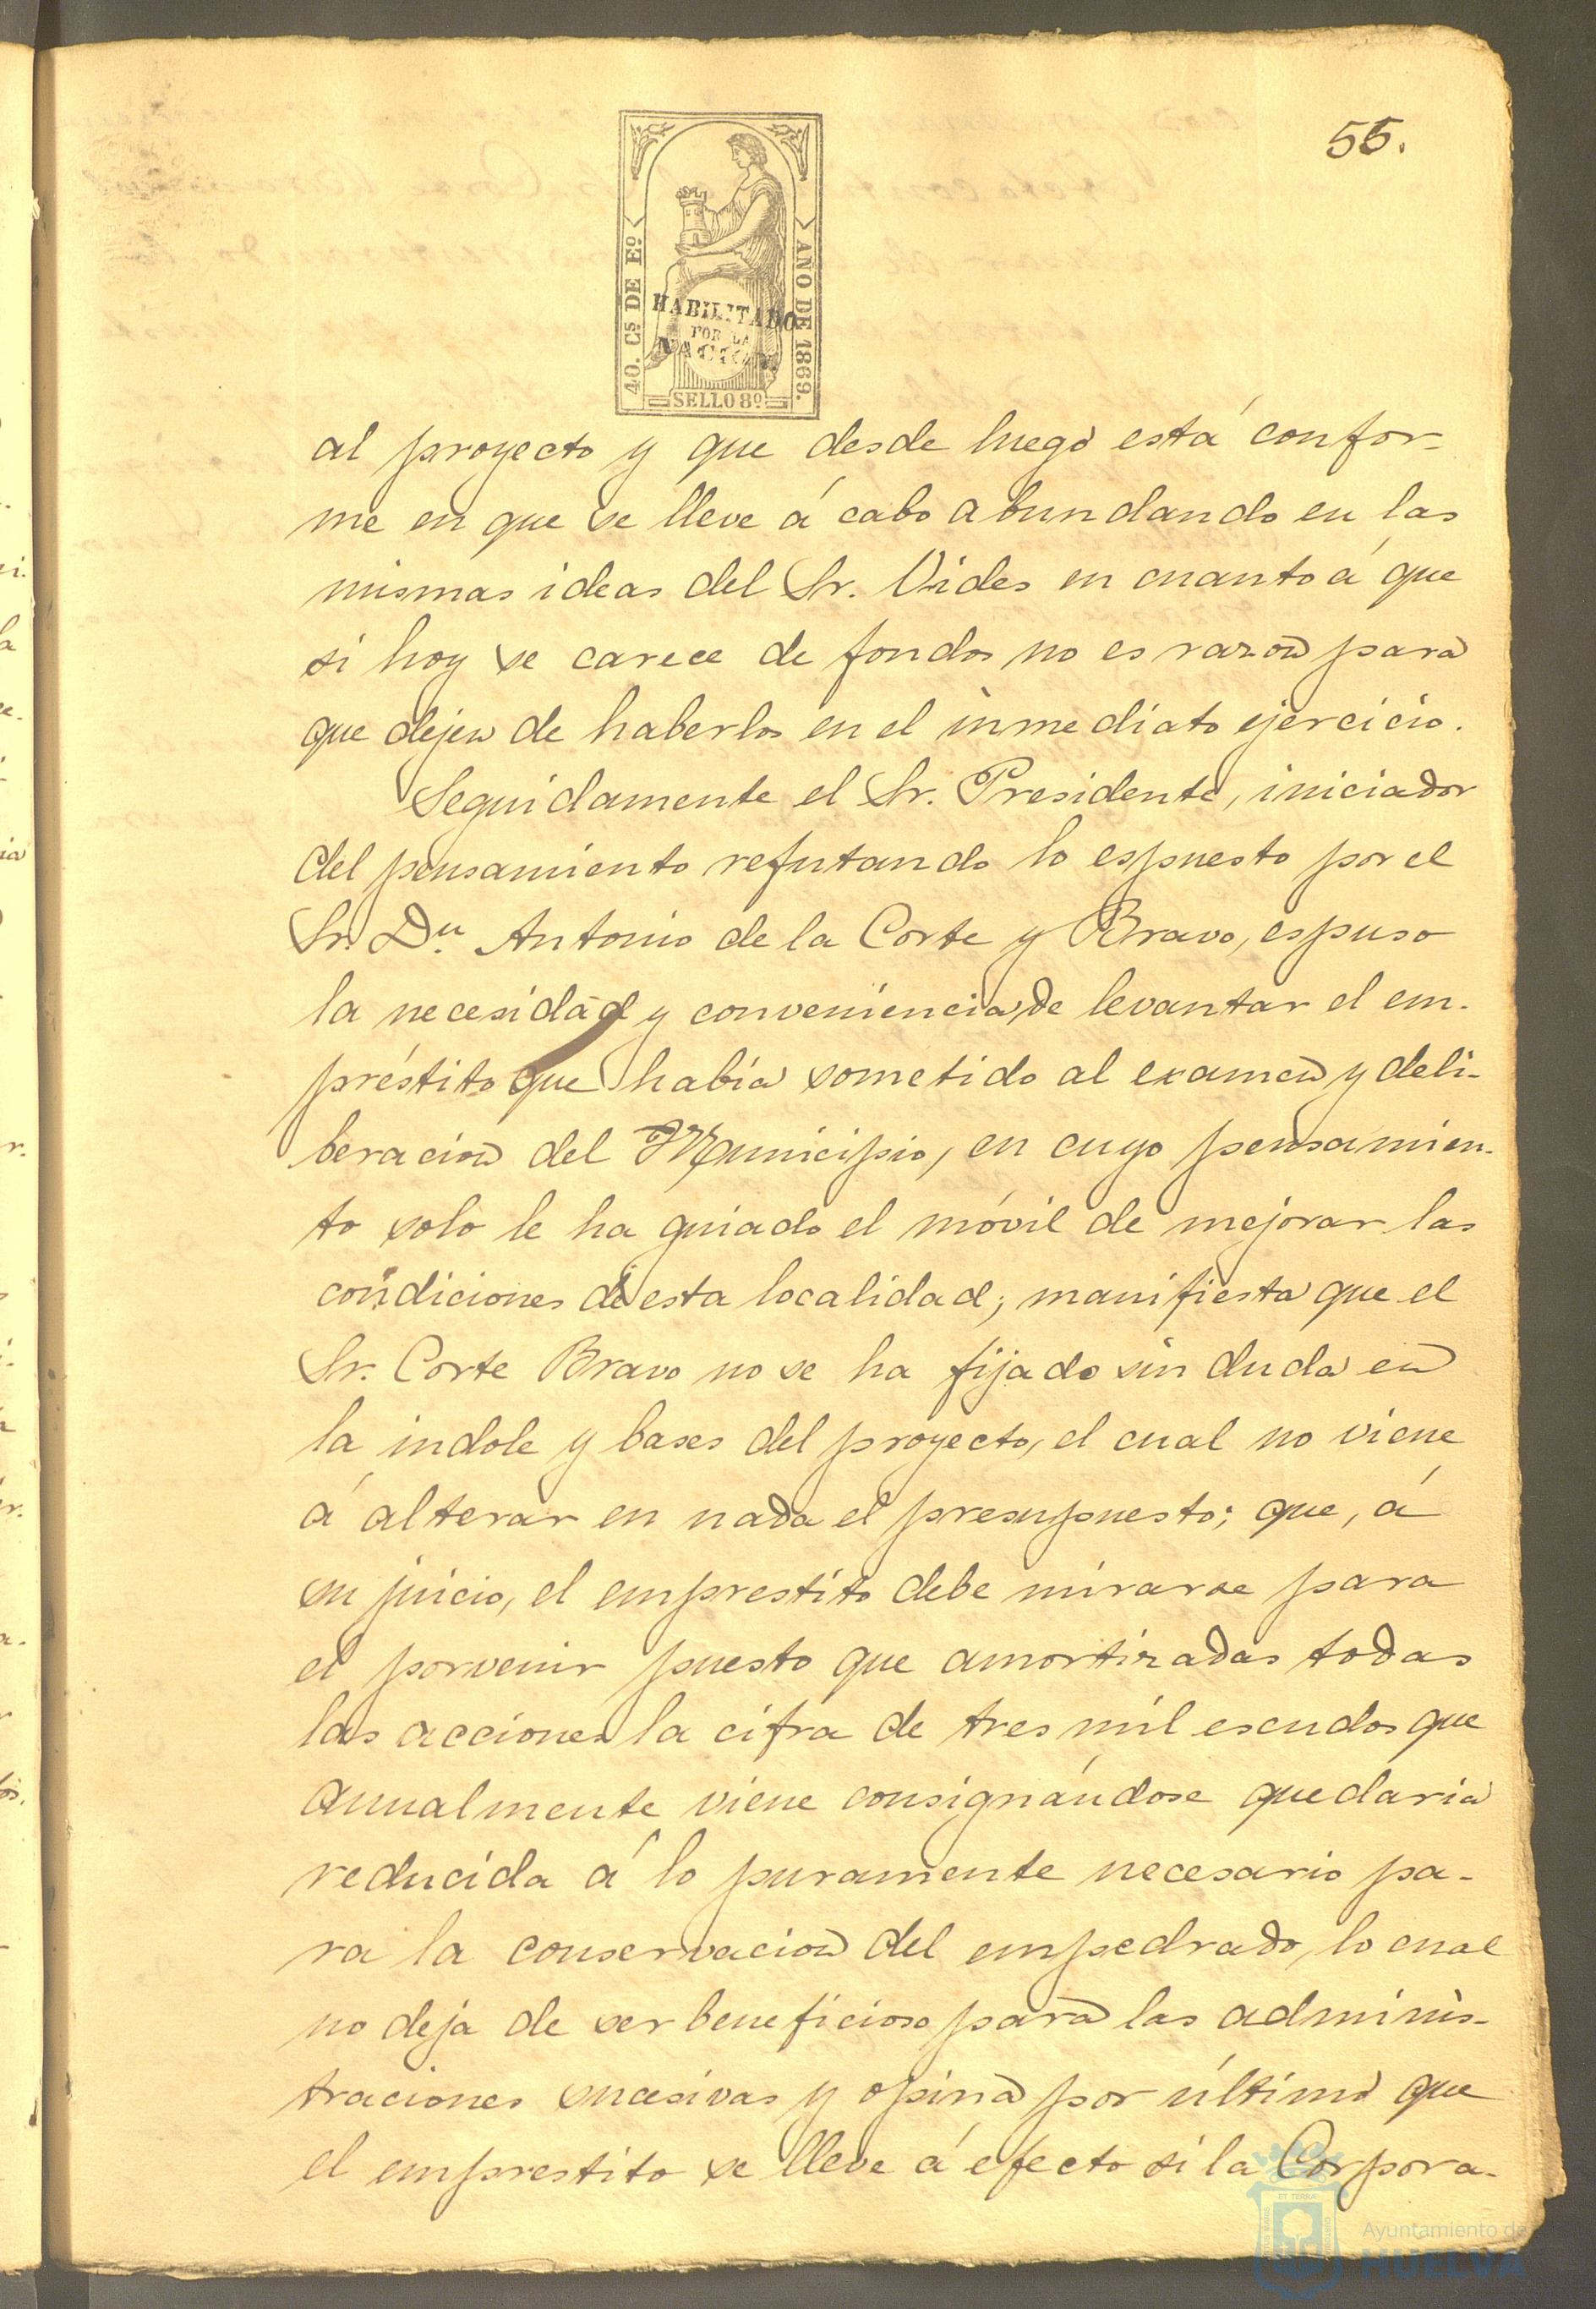 55.
40. Cs DE Eo
AÑO DE 1869.
HABILITADO
POR LA
NACION
SELLO 8o
al proyecto y que desde luego está confor-
me en que se lleve á cabo abundando en las
mismas ideas del Sr. Vides en cuanto á que
si hoy se carece de fondos no es razon para
que dejen de haberlos en el inmediato ejercicio.
Seguidamente el Sr. Presidente, iniciador
del pensamiento refutando lo espuesto por el
Sr. Dn. Antonio de la Corte y Bravo, espuso
la necesidad y conveniencia de levantar el em-
préstito que habia sometido al examen y deli-
beracion del Municipio, en cuyo pensamien-
to solo le ha guiado el móvil de mejorar las
condiciones de esta localidad; manifiesta que el
Sr. Corte Bravo no se ha fijado sin duda en
la indole y bases del proyecto, el cual no viene
á alterar en nada el presupuesto; que, á
su juicio, el emprestito debe mirarse para
el porvenir puesto que amortizadas todas
las acciones la cifra de tres mil escudos que
anualmente viene consignándose quedaria
reducida á lo puramente necesario pa-
ra la conservacion del empedrado, lo cual
no deja de ser beneficioso para las adminis-
traciones sucesivas y opina por último que
el emprestito se lleve á efecto si la Corpora-
Ayuntamiento de
HUELVA